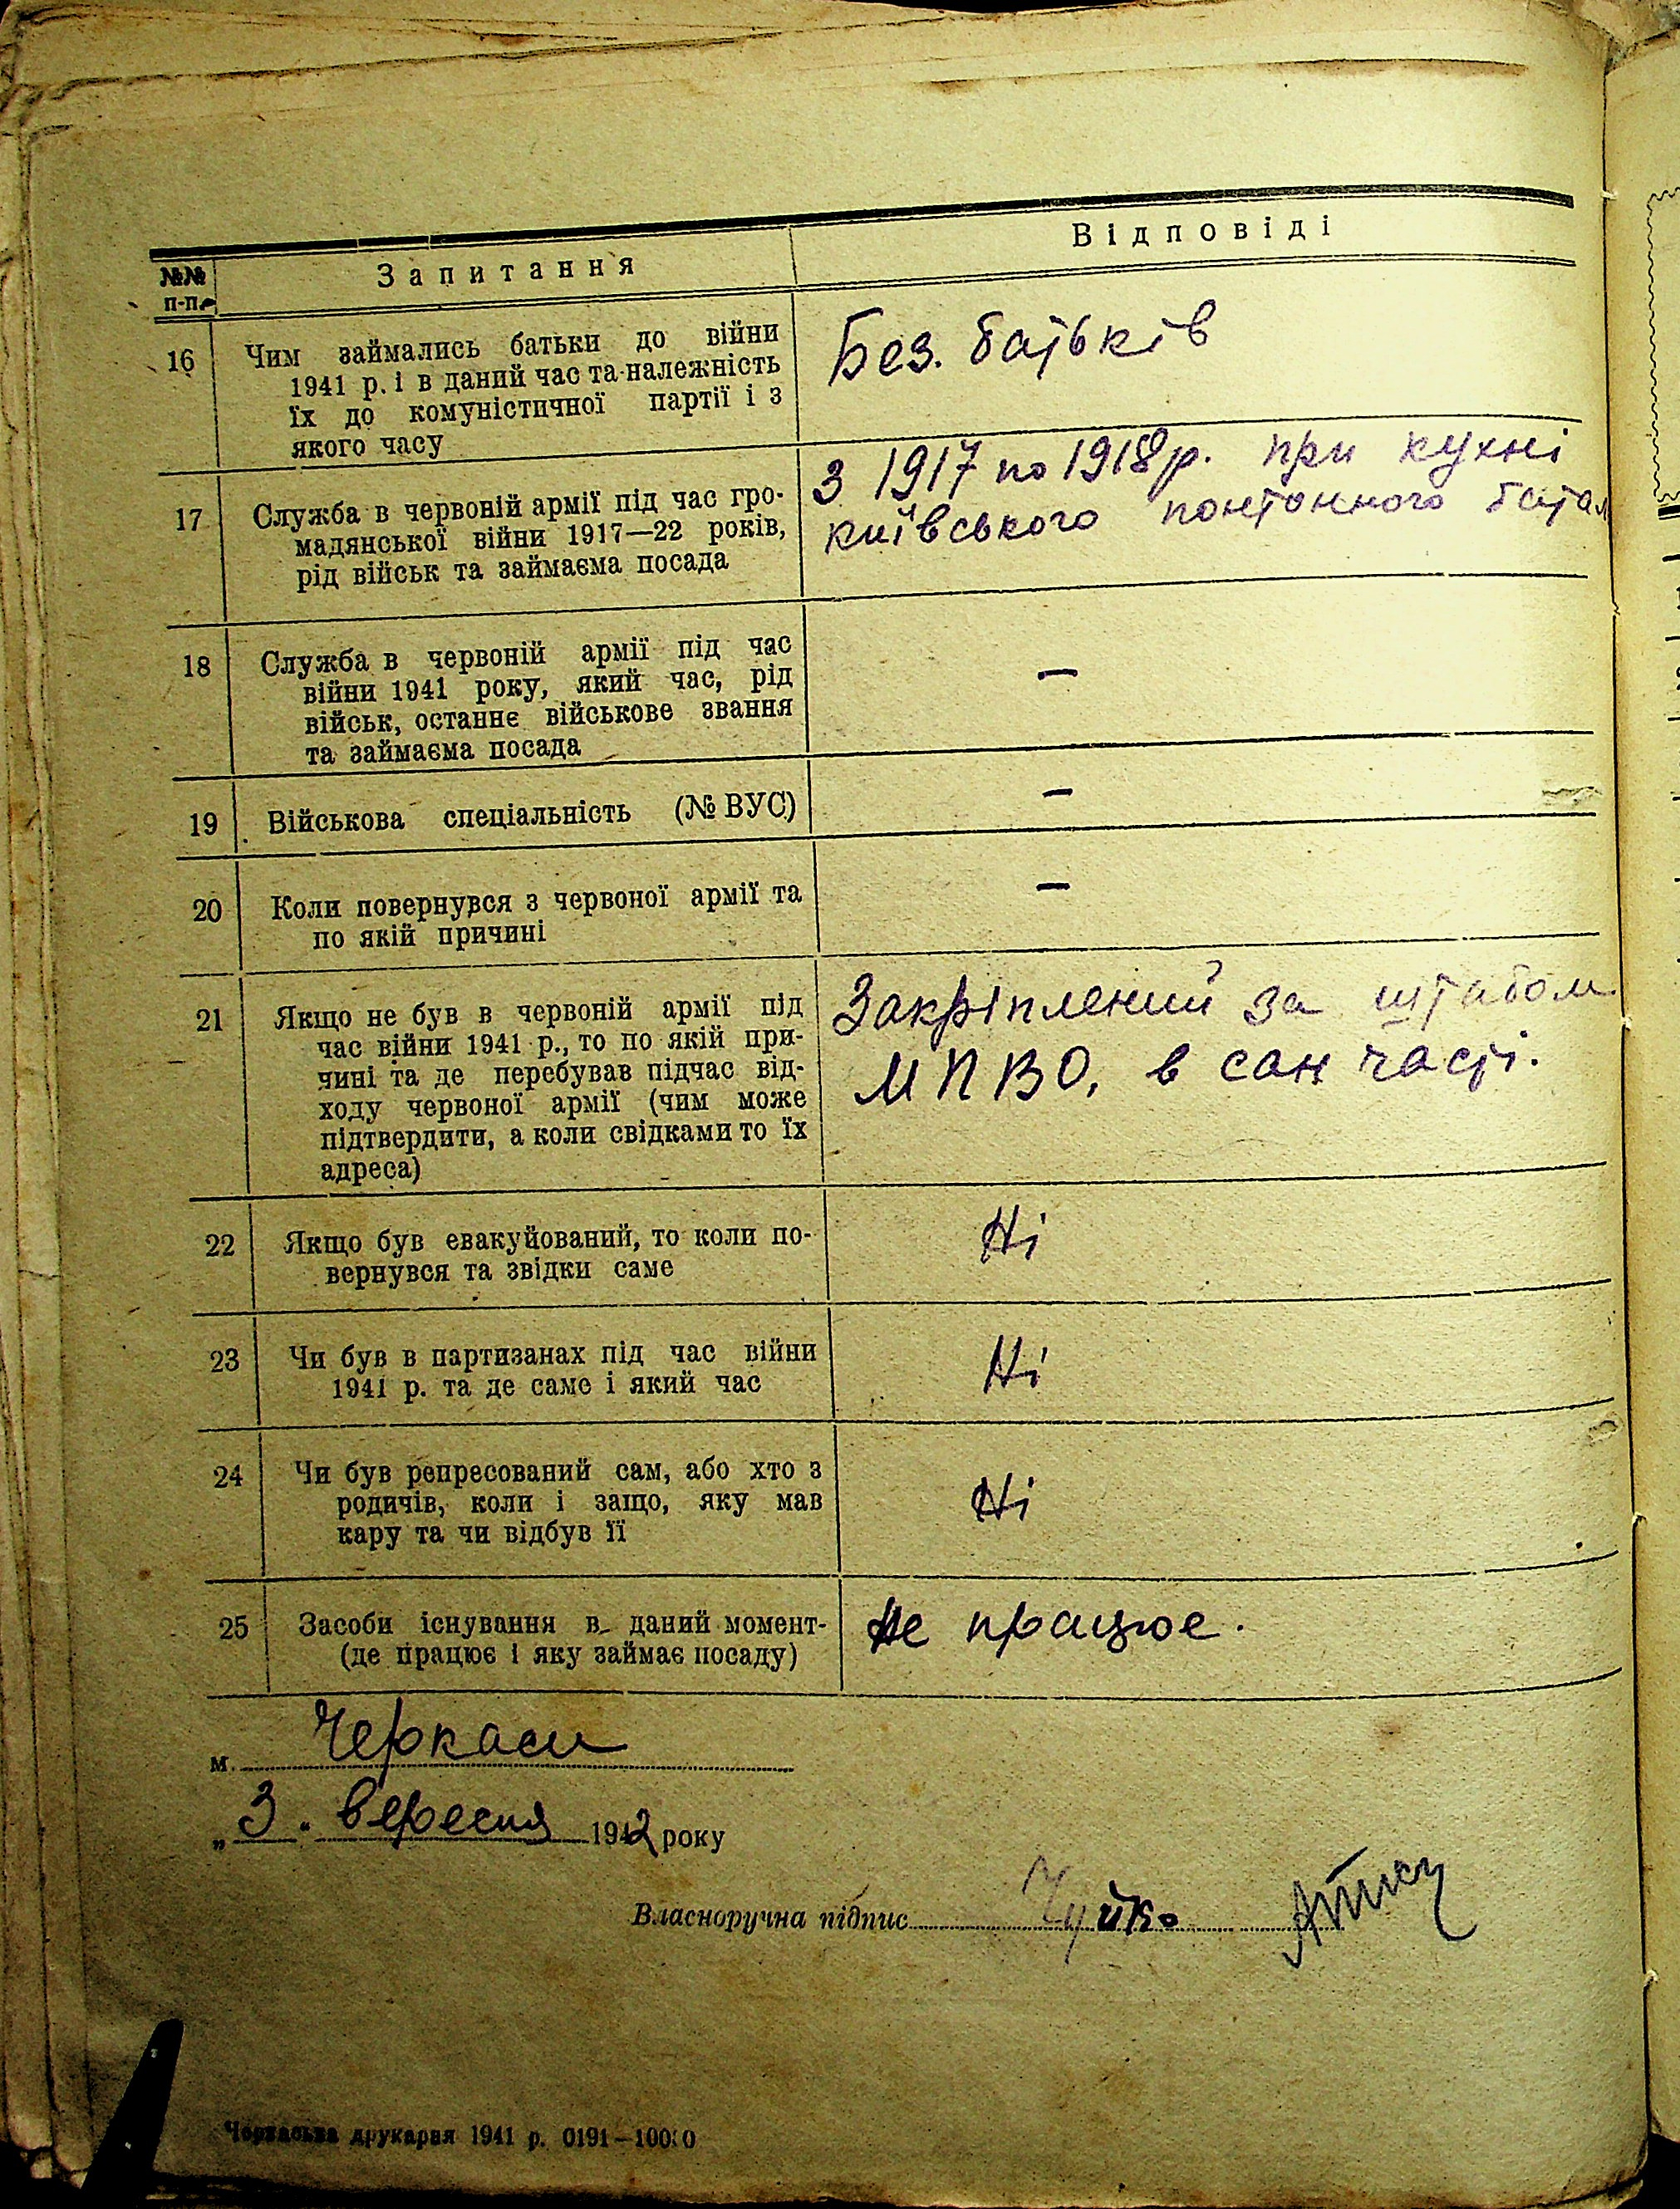 №№ п-п. Запитання Відповіді
16 Чим займались батьки до війни
1941 р. і в даний час та належність
їх до комуністичної партії і з
якого часу
Без. батьків
17 Служба в червоній армії під час гро-
мадянської війни 1917—22 років,
рід військ та займаєма посада
З 1917 по 1918 р. при кухні
київського понтонного батал
18 Служба в червоній армії під час
війни 1941 року, який час, рід
військ, останнє військове звання
та займаєма посада
—
19 Військова спеціальність (№ ВУС)
—
20 Коли повернувся з червоної армії та
по якій причині
—
21 Якщо не був в червоній армії під
час війни 1941 р., то по якій при-
чині та де перебував підчас від-
ходу червоної армії (чим може
підтвердити, а коли свідками то їх
адреса)
Закріплений за штабом
МПВО, в сан часті.
22 Якщо був евакуйований, то коли по-
вернувся та звідки саме
Ні
23 Чи був в партизанах під час війни
1941 р. та де саме і який час
Ні
24 Чи був репресований сам, або хто з
родичів, коли і защо, яку мав
кару та чи відбув її
Ні
25 Засоби існування в даний момент-
(де працює і яку займає посаду)
Не працює.
м. Черкаси
„3" вересня 1942 року
Власноручна підпис Чуйко
Черкаська друкарня 1941 р. 0191—10000